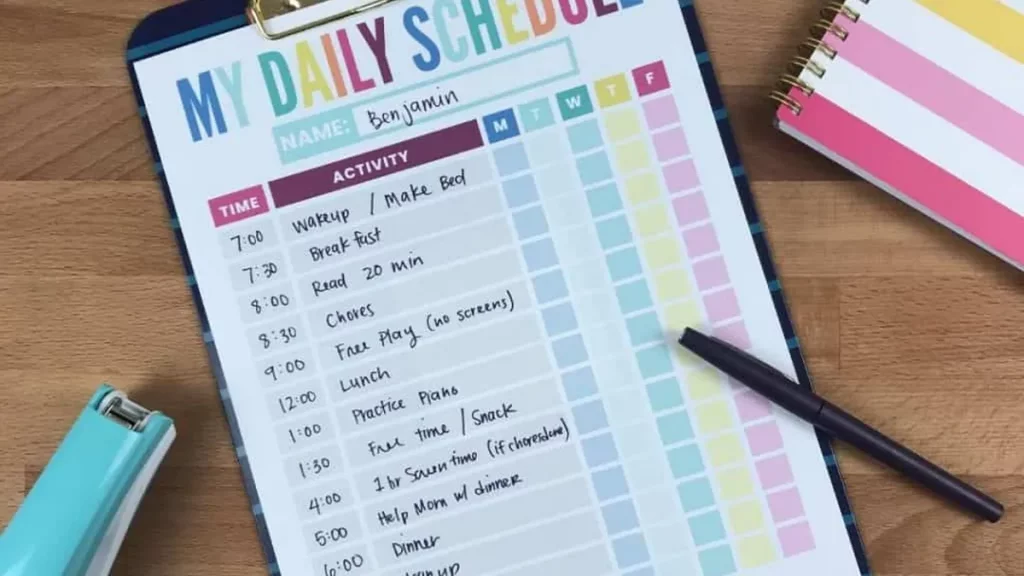 MY DAILY SCHEDULE
NAME: Benjamin
TIME ACTIVITY M T W T F
7:00 Wakeup / Make Bed
7:30 Breakfast
8:00 Read 20 min
8:30 Chores
9:00 Free Play (no screens)
12:00 Lunch
1:00 Practice Piano
1:30 Free time / Snack
4:00 1 hr Screen time (if chores done)
5:00 Help Mom w/ dinner
6:00 Dinner